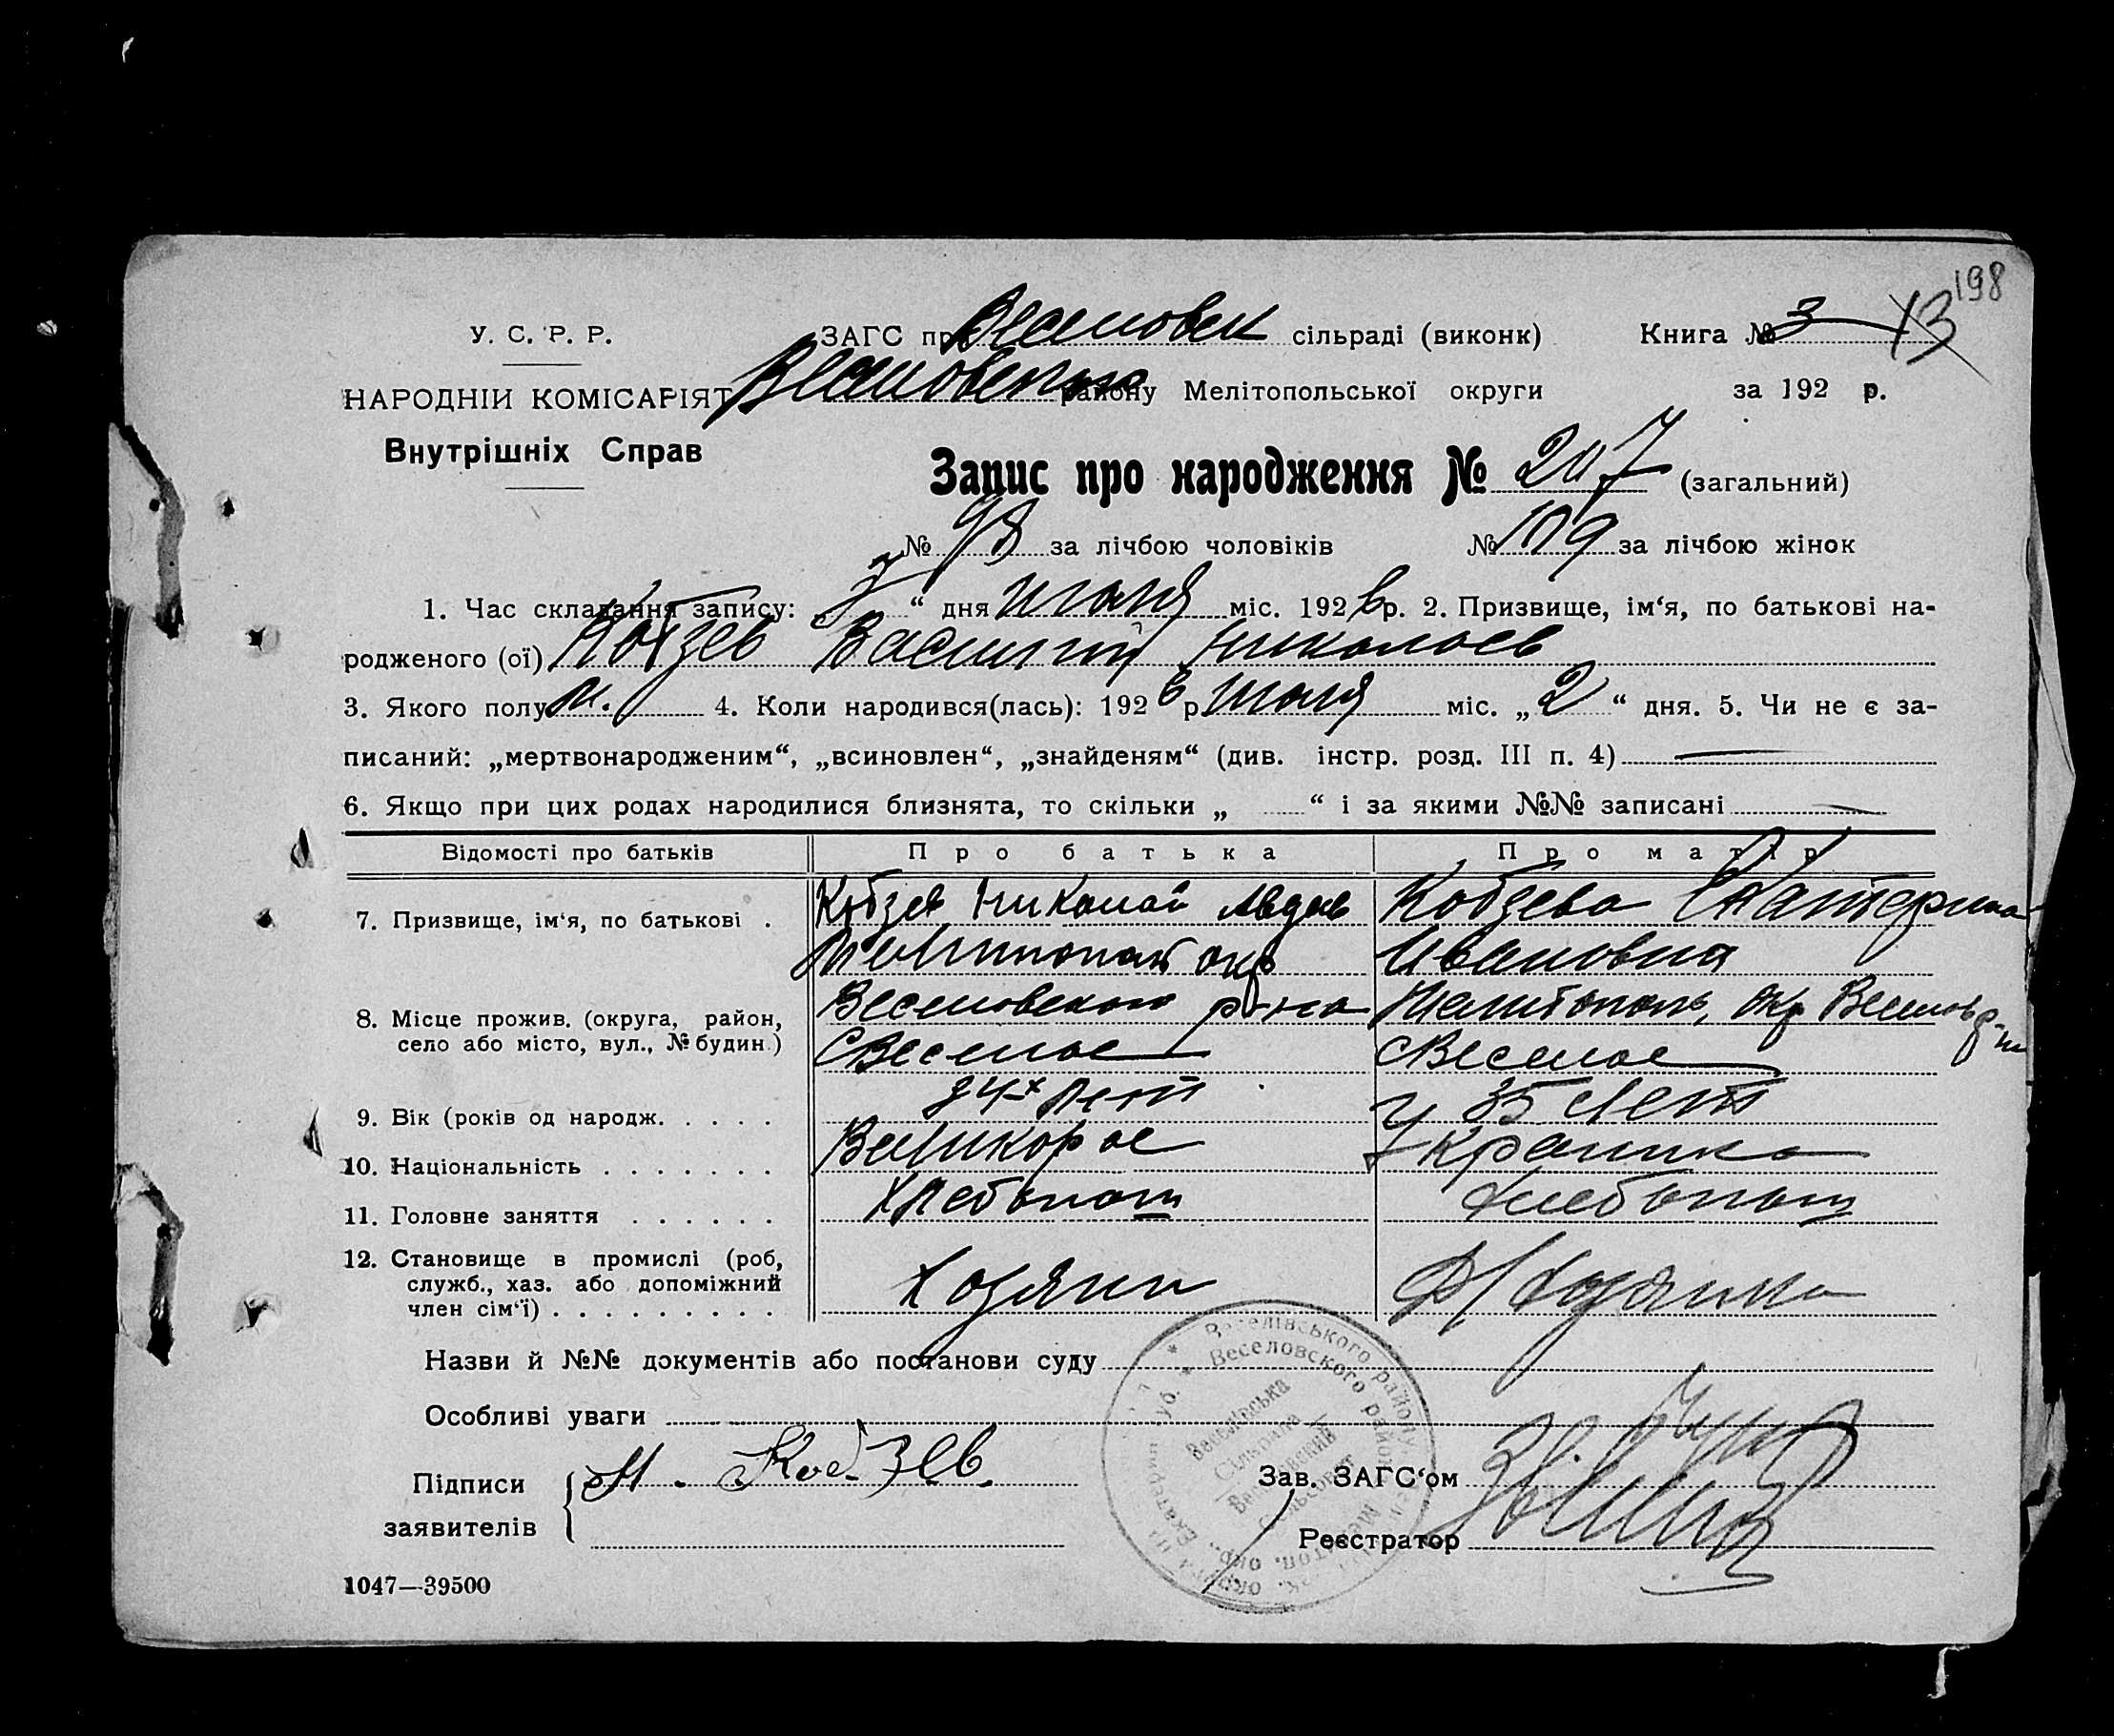 198
У. С. Р. Р. ЗАГС при Веселовск сільраді (виконк) Книга № 3 13
НАРОДНІЙ КОМІСАРІЯТ Веселовского району Мелітопольської округи за 192 р.
Внутрішніх Справ
Запис про народження № 207 (загальний)
№ 98 за лічбою чоловіків № 109 за лічбою жінок
1. Час складання запису: “ дня июля міс. 1926 р. 2. Призвище, ім‘я, по батькові на-
родженого (ої) Кобзев Василий Николаев
3. Якого полу м. 4. Коли народився(лась): 1926 р. июля міс. „ 2 “ дня. 5. Чи не є за-
писаний: „мертвонародженим“, „всиновлен“, „знайденям“ (див. інстр. розд. III п. 4)
6. Якщо при цих родах народилися близнята, то скільки „ “ і за якими №№ записані
Відомості про батьків Про батька Про матір
7. Призвище, ім‘я, по батькові . Кобзев Николай Авдеев Кобзева Екатерина
Мелитопол окр Ивановна
8. Місце прожив. (округа, район, Веселовского р-на Мелитополь, окр Веселов р-н
село або місто, вул., № будин.) с Веселое с Веселое
9. Вік (років од народж. . . . . лет 35 лет
10. Національність . . . . . . . Великорос Украинка
11. Головне заняття . . . . . . Хлебопаш Хлебопаш
12. Становище в промислі (роб,
служб., хаз. або допоміжний Хозяин Хозяина
член сім‘ї) . . . . . . . . .
Назви й №№ документів або постанови суду
Особливі уваги
Підписи Н. Кобзев. Зав. ЗАГС‘ом
заявителів Реєстратор
Веселівського району
Веселовского района
Веселівська
Сільрада
Веселовский
Сельсовет
1047—39500